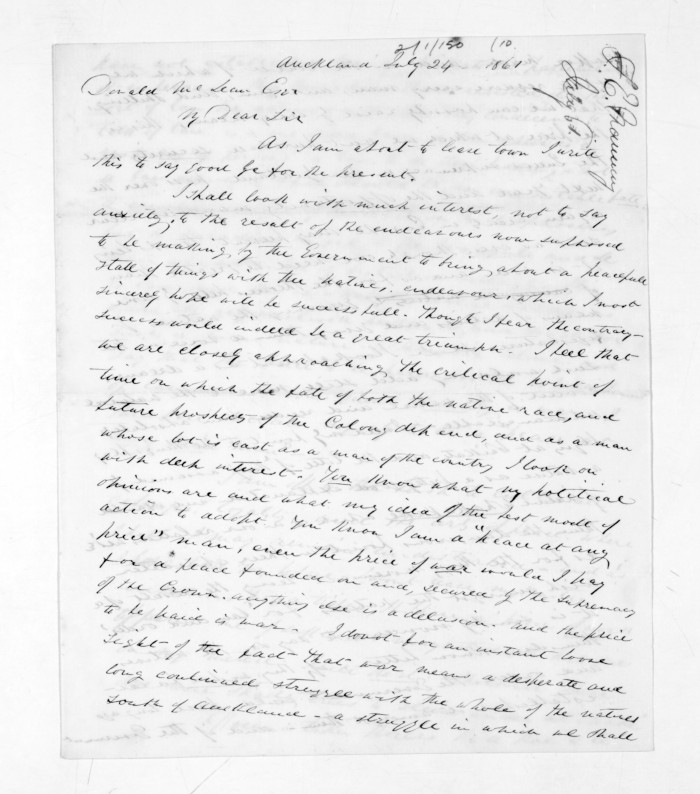 2/1/150 (10.
Auckland July 24 1861
F. E. Manning
July 61
Donald McLean Esqr
My Dear Sir
As I am about to leave town I write
this to say good bye for the present.
I shall look with much interest, not to say
anxiety, to the result of the endeavours now supposed
to be making, by the Government to bring about a peacefull
state of things with the Natives. endeavours which I most
sincerely hope will be successfull. Though I fear the contrary -
success would indeed be a great triumph. I feel that
we are closely approaching the critical point of
time on which the fate of both the native race, and
future prospects of the Colony depend, and as a man
whose lot is cast as a man of the country I look on
with deep interest. You know what my political
opinions are and what my idea of the best mode of
action to adopt. You know I am a "peace at any
price" man, even the price of war would I pay
for a peace founded on and, secured by the supremacy
of the Crown. anything else is a delusion. and the price
to be paid is war. I do not for an instant loose
sight of the fact that war means a desperate and
long continued struggle with the whole of the natives
south of Auckland - a struggle in which we shall